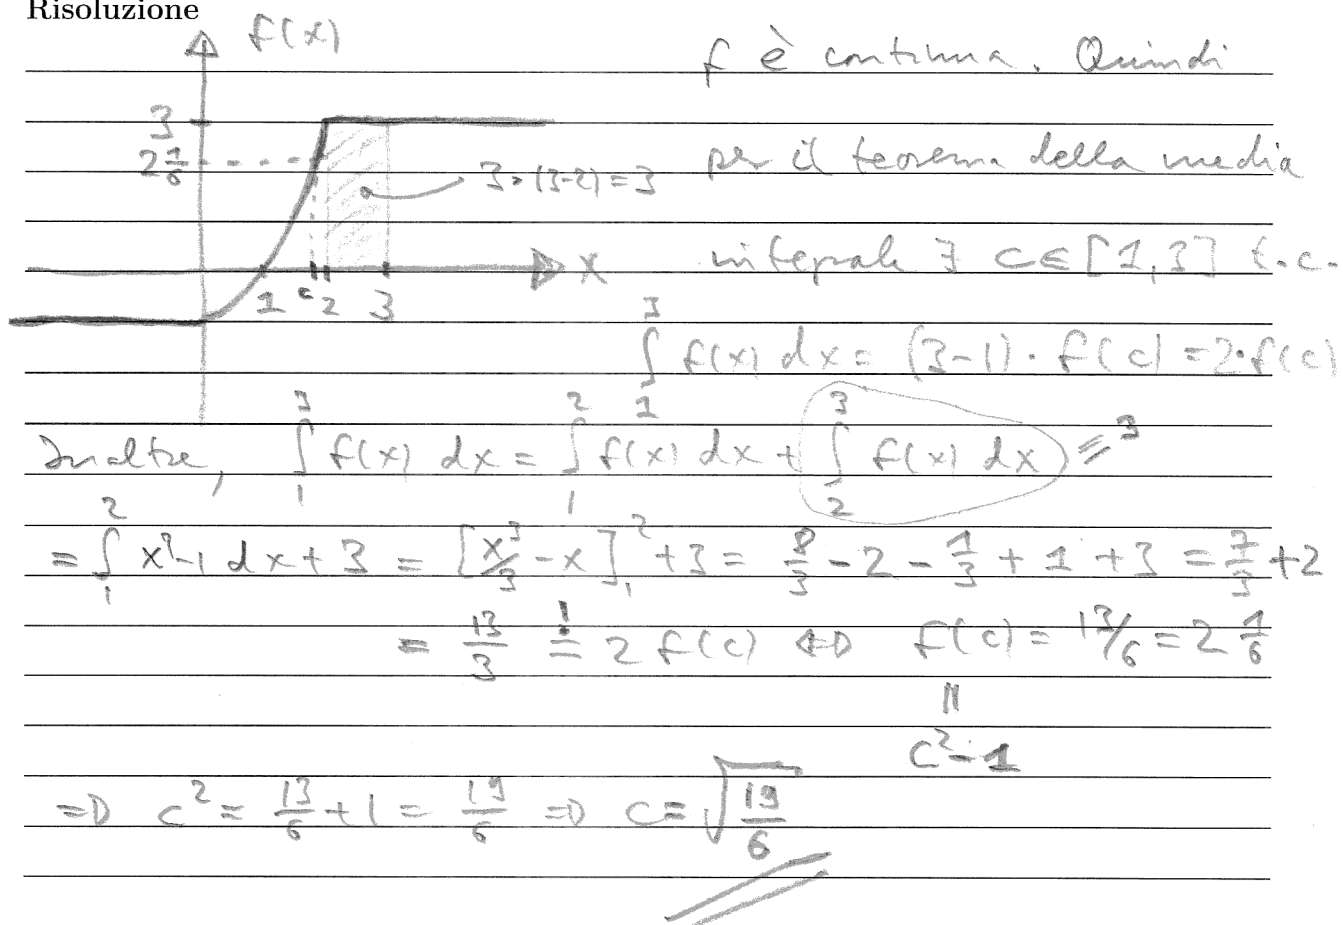 Risoluzione
f(x)
f è continua. Quindi
3
2 1/6
3·(3-2) = 3
per il teorema della media
x
integrale ∃ c ∈ [1,3] t.c.
1 c 2 3
∫₁³ f(x) dx = (3-1)·f(c) = 2·f(c)
Inoltre, ∫₁³ f(x) dx = ∫₁² f(x) dx + ∫₂³ f(x) dx = 3
= ∫₁² x²-1 dx + 3 = [x³/3 - x]₁² + 3 = 8/3 - 2 - 1/3 + 1 + 3 = 7/3 + 2
= 13/3 =! 2 f(c) ⇔ f(c) = 13/6 = 2 1/6
||
c²-1
⇒ c² = 13/6 + 1 = 19/6 ⇒ c = √(19/6)